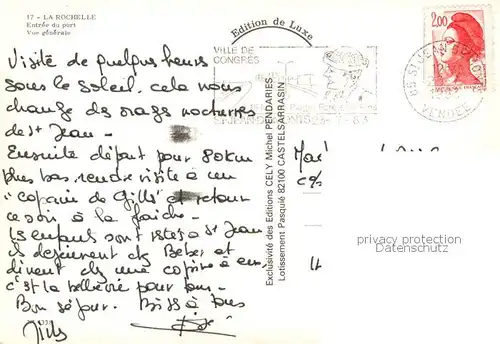 17 - LA ROCHELLE
Entrée du port
Vue générale
Edition de Luxe
Visite de quelques heures
sous le soleil, cela nous
change des orages nocturnes
de St Jean -
Ensuite départ pour 80km
plus bas, rendre visite à un
"copain de Gills" et retour
ce soir à la
Les enfants sont restés à St Jean
ils déjeunent chez Beber et
dinent chez une copine à eux
c'est la belle vie pour tous -
Bon séjour. Bises à tous
Gills
VILLE DE
CONGRÈS
2,00
85 ST JEAN DE MONTS
VENDEE
Exclusivité des Editions CELY Michel PENDARIES
Lotissement Pasquié 82100 CASTELSARRASIN
privacy protection
Datenschutz